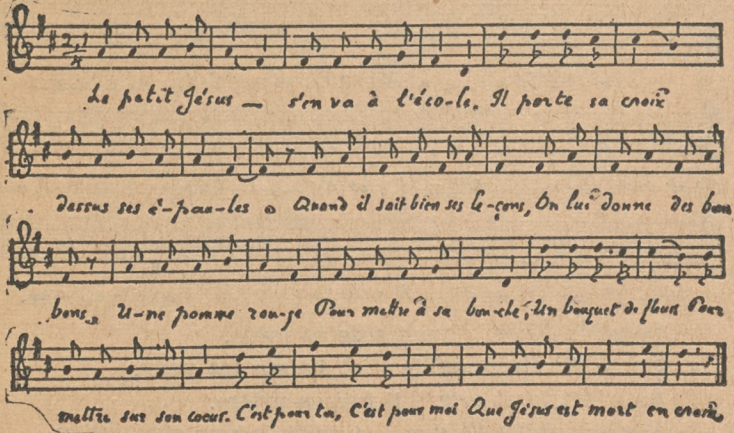 Le petit Jésus — s'en va à l'éco-le. Il porte sa croix
dessus ses é-pau-les. Quand il sait bien ses le-çons, On lui donne des bon
bons. U-ne pomme rou-ge Pour mettre à sa bou-che, Un bouquet de fleurs Pour
mettre sur son coeur. C'est pour toi, C'est pour moi Que Jésus est mort en croix.